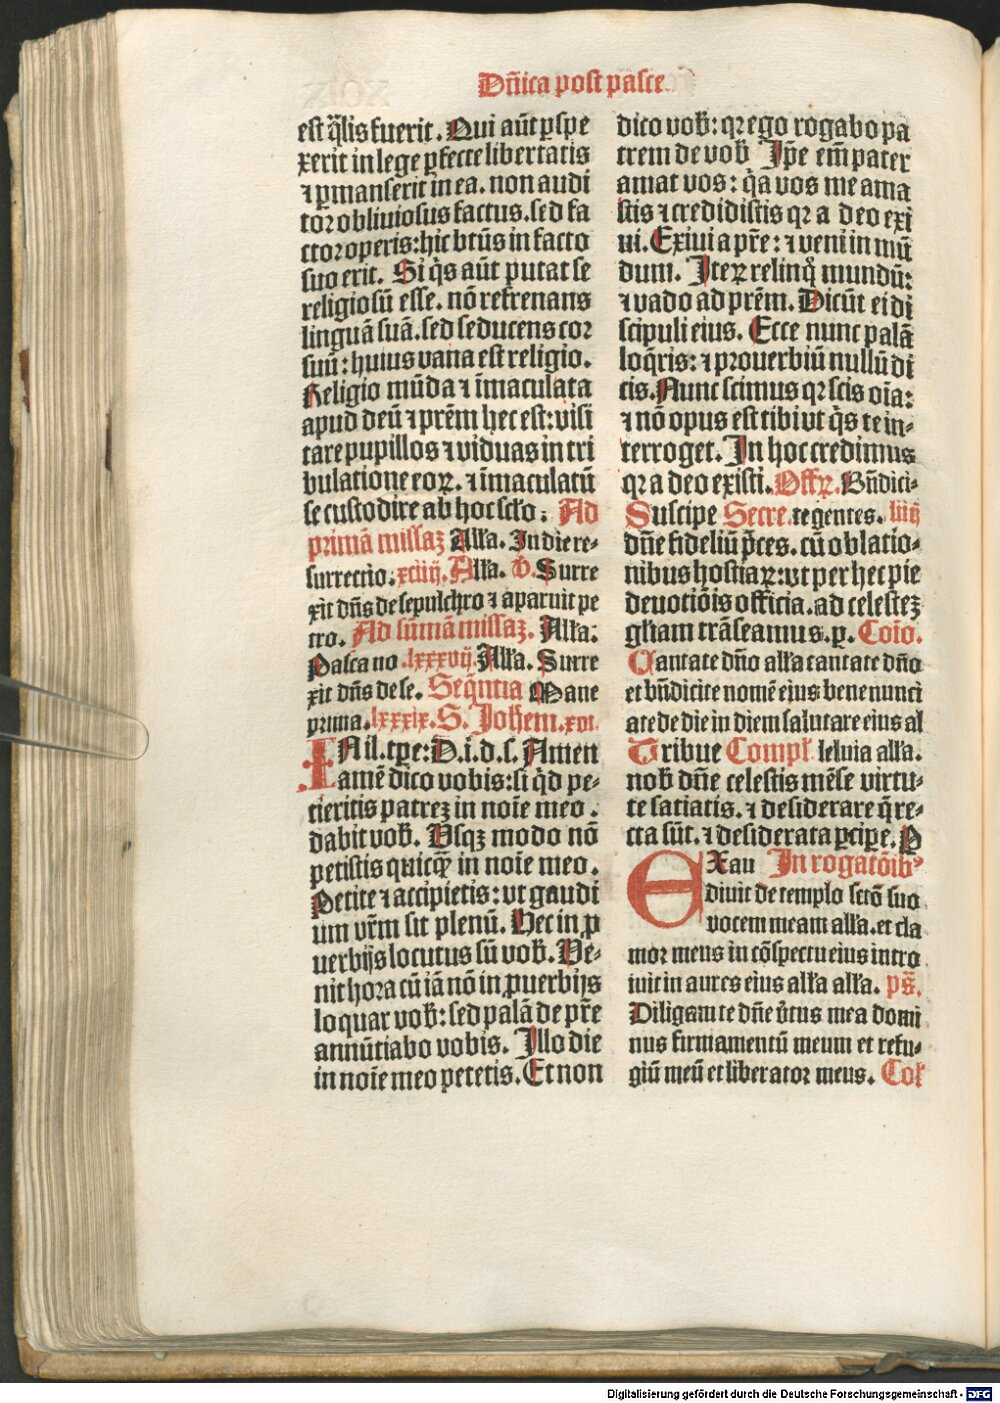 Dn̄ica post pasce
est q̄lis fuerit. Qui aūt ꝑspe
xerit in lege ꝑfecte libertatis
⁊ ꝑmanserit in ea. non audi
tor obliuiosus factus. sed fa
ctor operis: hic btūs in facto
suo erit. Si q̄s aūt putat se
religiosū esse. nō refrenans
linguā suā. sed seducens cor
suū: huius vana est religio.
Religio mūda ⁊ īmaculata
apud deū ⁊ prēm hec est: visi
tare pupillos ⁊ viduas in tri
bulatione eoꝝ. ⁊ īmaculatū
se custodire ab hoc sclo. Ad
primā missaꝫ Alla. In die re-
surrectio. xciiij. Alla. V. Surre
xit dn̄s de sepulchro ⁊ aparuit pe
tro. Ad sūmā missaꝫ. Alla.
Pasca no. lxxxvij. Alla. Surre
xit dn̄s de se. Seq̄ntia Mane
prima. lxxxix. S. Johēm. xvi.
IN il. tpe: D. i. d. s. Amen
amē dico vobis: si q̄d pe-
tieritis patreꝫ in noīe meo.
dabit vob̄. Vsqꝫ modo nō
petistis quicq̄ in noīe meo.
Petite ⁊ accipietis: vt gaudi
um vrm̄ sit plenū. Hec in ꝓ
uerbijs locutus sū vob̄. Ve-
nit hora cū iā nō in ꝓuerbijs
loquar vob̄: sed palā de prē
annūtiabo vobis. Illo die
in noīe meo petetis. Et non
dico vob̄: qꝛ ego rogabo pa
trem de vob̄ Ip̄e em̄ pater
amat vos: q̄a vos me ama
stis ⁊ credidistis qꝛ a deo exi
ui. Exiui a prē: ⁊ veni in mū
dum. Iteꝝ relinq̄ mundū:
⁊ vado ad prēm. Dicūt ei di
scipuli eius. Ecce nunc palā
loq̄ris: ⁊ prouerbiū nullū di
cis. Nunc scimus qꝛ scis oīa:
⁊ nō opus est tibi vt q̄s te in-
terroget. In hoc credimus
qꝛ a deo existi. Offꝝ. Bn̄dici-
Suscipe Secre. te gentes. liiij
dn̄e fideliū p̄ces. cū oblatio-
nibus hostiaꝝ: vt per hec pie
deuotiōis officia. ad celesteꝫ
gliam trāseamus. ꝑ. Coīo.
Cantate dn̄o alla cantate dn̄o
et bn̄dicite nomē eius bene nunci
ate de die in diem salutare eius al
Tribue Compl. leluia alla.
nob̄ dn̄e celestis mēse virtu-
te satiatis. ⁊ desiderare q̄ re-
cta sūt. ⁊ desiderata ꝑcipe. P
EXau In rogatōibꝰ
diuit de templo sctō suo
vocem meam alla. et cla
mor meus in cōspectu eius intro
iuit in aures eius alla alla. ps̄.
Diligam te dn̄e v̄tus mea domi
nus firmamentū meum et refu-
giū meū et liberator meus. Col
Digitalisierung gefördert durch die Deutsche Forschungsgemeinschaft - DFG